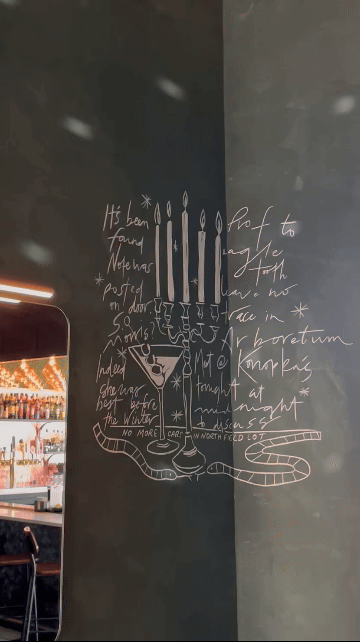 It's been
found
Note was
posted
on door.
S.O.
Morris?
Indeed
she was
best before
the winter
Prof to
tooth
leave no
trace in
Arboretum
Met @ Konopka's
tonight at
midnight
to discuss
NO MORE CARE IN NORTHFIELD LOT